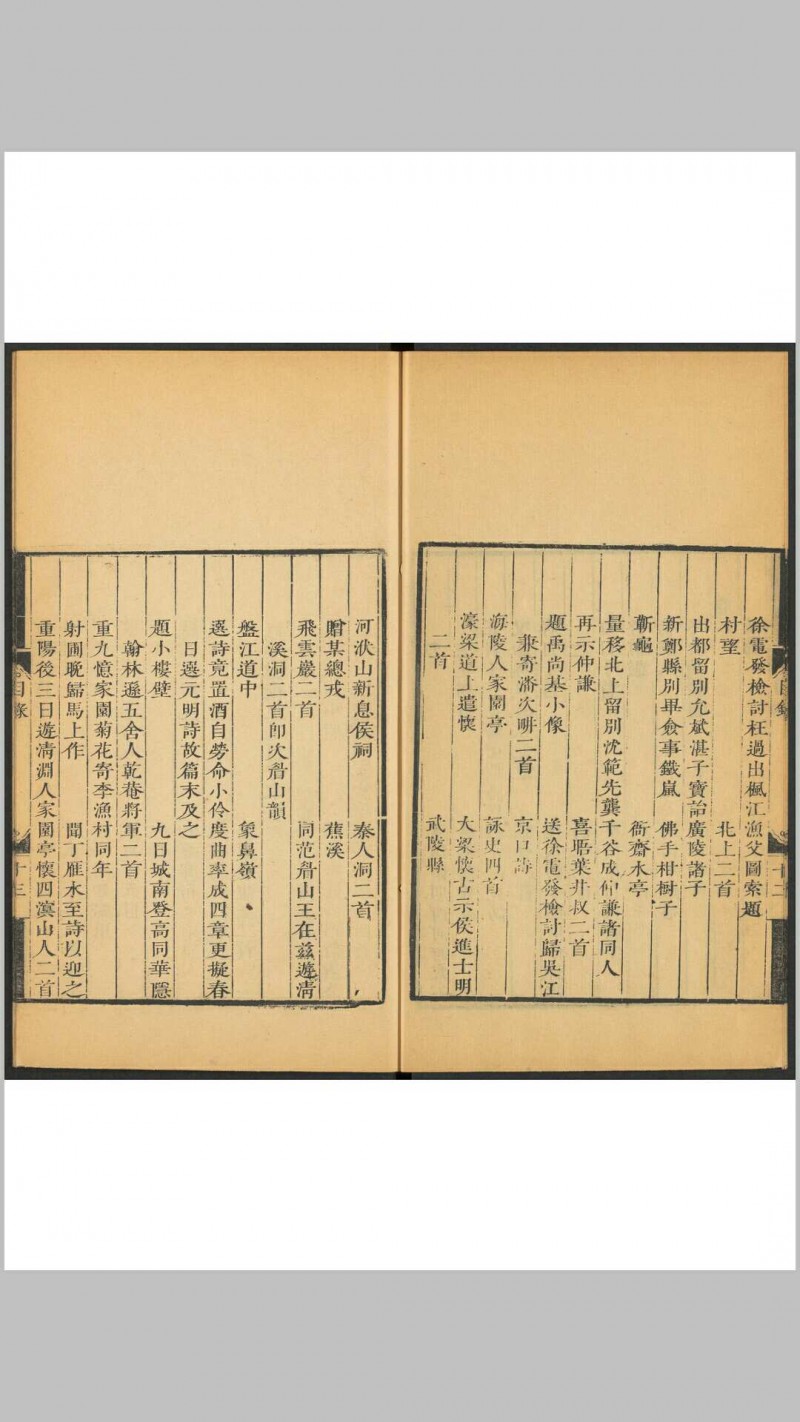 徐電發檢討枉過出楓江漁父圖索題
村望 北上二首
出都留別允斌湛子寶詒廣陵諸子
新鄭縣別畢僉事鐵嵐 佛手柑橱子
蘄龜 衙齋水亭
量移北上留別沈範先龔千谷成仰謙諸同人
再示仲謙 喜晤葉井叔二首
題禹尚基小像 送徐電發檢討歸吳江
兼寄潘次畊二首 京口詩
海陵人家園亭 詠史四首
濠梁道上遣懷 大梁懷古示侯進士明
二首 武陵縣
目錄 十二
河洑山新息侯祠 秦人洞二首
贈某總戎 蕉溪
飛雲巖二首 同范眉山王在茲遊清
溪洞二首即次眉山韻
盤江道中 象鼻嶺
選詩竟置酒自勞命小伶度曲率成四章更擬春
日選元明詩故篇末及之
題小樓壁 九日城南登高同華隱
翰林遜五舍人乾菴將軍二首
重九憶家園菊花寄李漁村同年
射圃晚歸馬上作 聞丁雁水至詩以迎之
重陽後三日遊清淵人家園亭懷四溟山人二首
目錄 十三